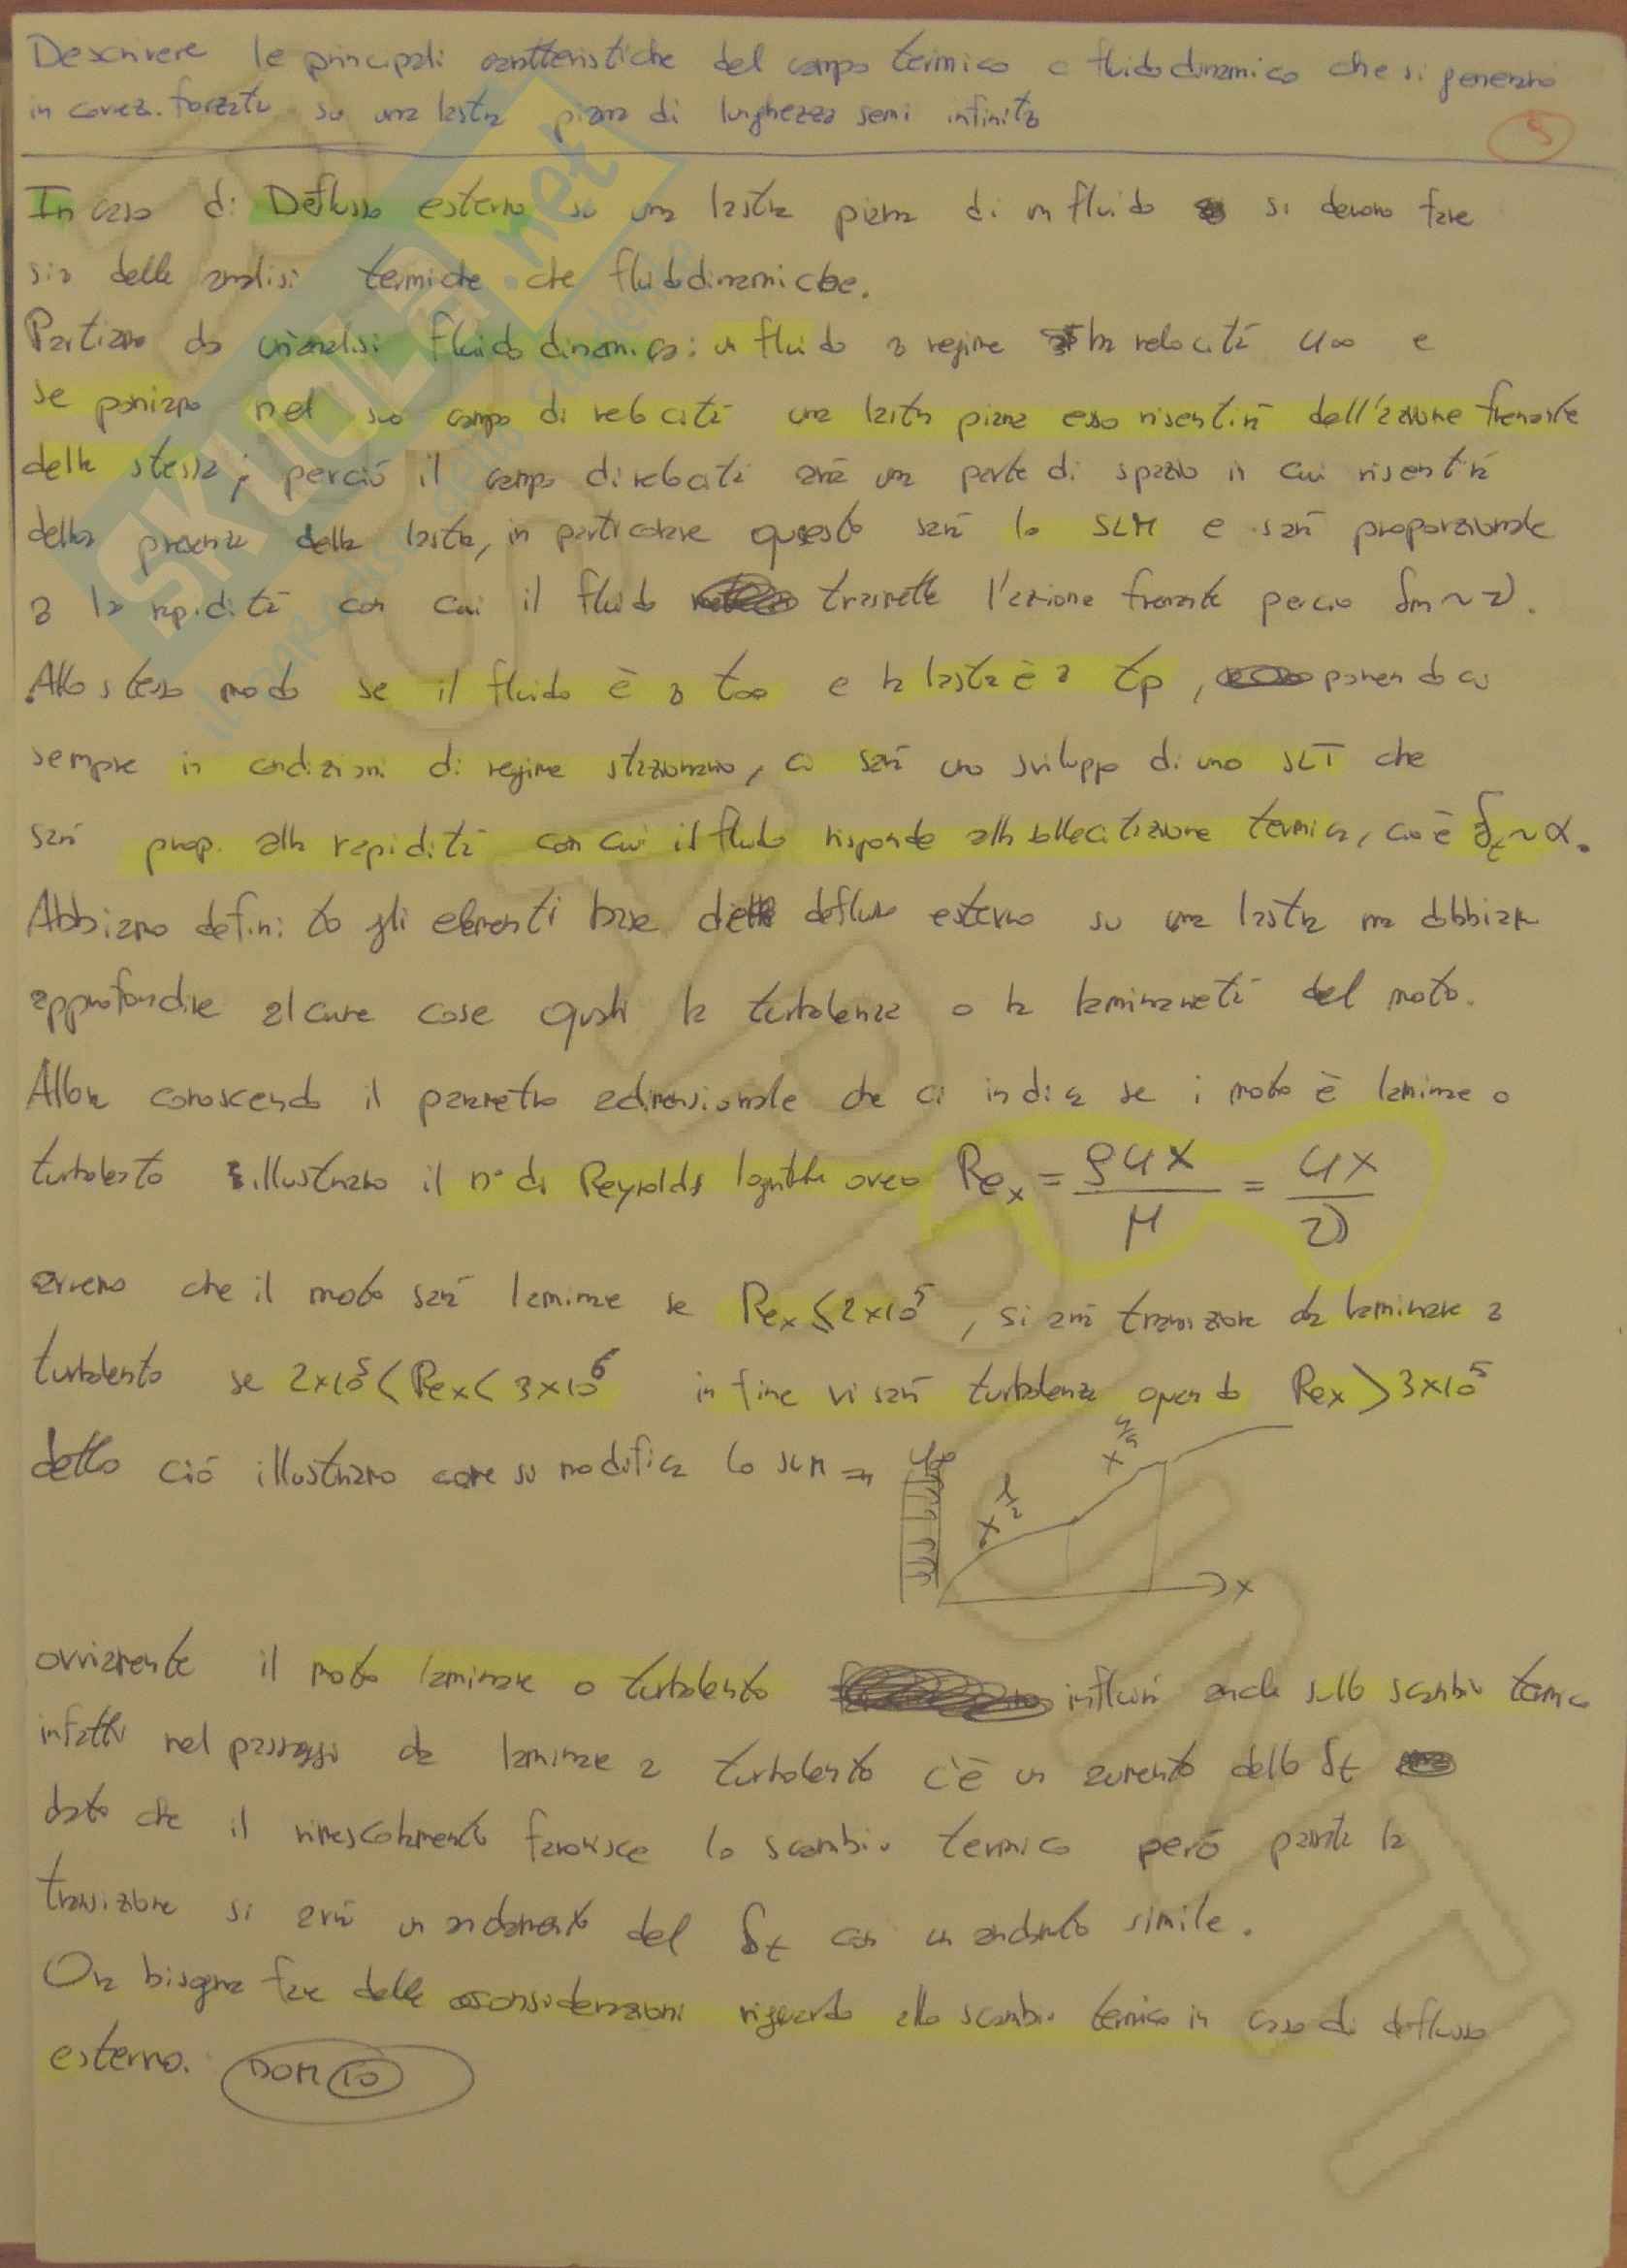 Descrivere le principali caratteristiche del campo termico e fluidodinamico che si generano
in convez. forzata su una lastra piana di lunghezza semi infinita
5
In caso di Deflusso esterno su una lastra piana di un fluido si devono fare
sia delle analisi termiche che fluidodinamiche.
Partiamo da un'analisi fluidodinamica: un fluido a regime ha velocità u∞ e
se poniamo nel suo campo di velocità una lastra piana esso risentirà dell'azione frenante
della stessa; perciò il campo di velocità avrà una parte di spazio in cui risentirà
della presenza della lastra, in particolare questo sarà lo SLM e sarà proporzionale
a la rapidità con cui il fluido trasmette l'azione frenante perciò δm ~ ν.
Allo stesso modo se il fluido è a t∞ e la lastra è a tp, ponendoci
sempre in condizioni di regime stazionario, ci sarà uno sviluppo di uno SLT che
sarà prop. alla rapidità con cui il fluido risponde alla sollecitazione termica, cioè δt ~ α.
Abbiamo definito gli elementi base del deflusso esterno su una lastra ma dobbiamo
approfondire alcune cose quali la turbolenza o la laminarietà del moto.
Allora conoscendo il parametro adimensionale che ci indica se i moto è laminare o
turbolento illustriamo il n° di Reynolds ovvero Re_x = ρux/μ = ux/ν
avremo che il moto sarà laminare se Re_x ≤ 2×10^5, si avrà transizione da laminare a
turbolento se 2×10^5 < Re_x < 3×10^6 infine vi sarà turbolenza quando Re_x > 3×10^5
detto ciò illustriamo come si modifica lo SLM ⇒ u∞ x^1/2 x^4/5 x
ovviamente il moto laminare o turbolento influirà anche sullo scambio termico
infatti nel passaggio da laminare a turbolento c'è un aumento dello δt
dato che il rimescolamento favorisce lo scambio termico però passata la
transizione si avrà un andamento del δt con un andamento simile.
Ora bisogna fare delle considerazioni riguardo allo scambio termico in caso di deflusso
esterno. DOM 10
SKUOLA.net
il paradiso dello studente